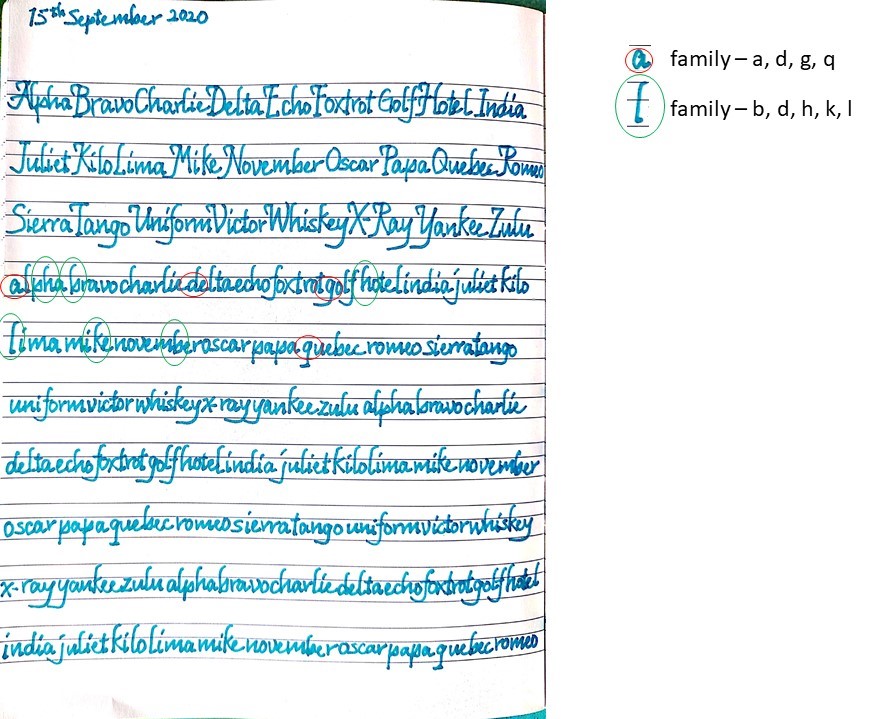 15th September 2020
a family – a, d, g, q
l family – b, d, h, k, l
AlphaBravoCharlieDeltaEchoFoxtrot GolfHotel India
JulietKiloLima Mike November Oscar Papa Quebec Romeo
SierraTango UniformVictorWhiskeyX-Ray Yankee Zulu
alpha bravo charlie deltaechofoxtrotgolf hotel india juliet kilo
lima mike november oscar papa quebec romeo sierra tango
uniformvictor whiskey x-ray yankee zulu alpha bravo charlie
deltaechofoxtrotgolfhotel india juliet kilo lima mike november
oscar papa quebec romeo sierra tango uniform victor whiskey
x-ray yankee zulu alphabravocharliedeltaechofoxtrotgolfhotel
india juliet kilo lima mike november oscar papa quebec romeo